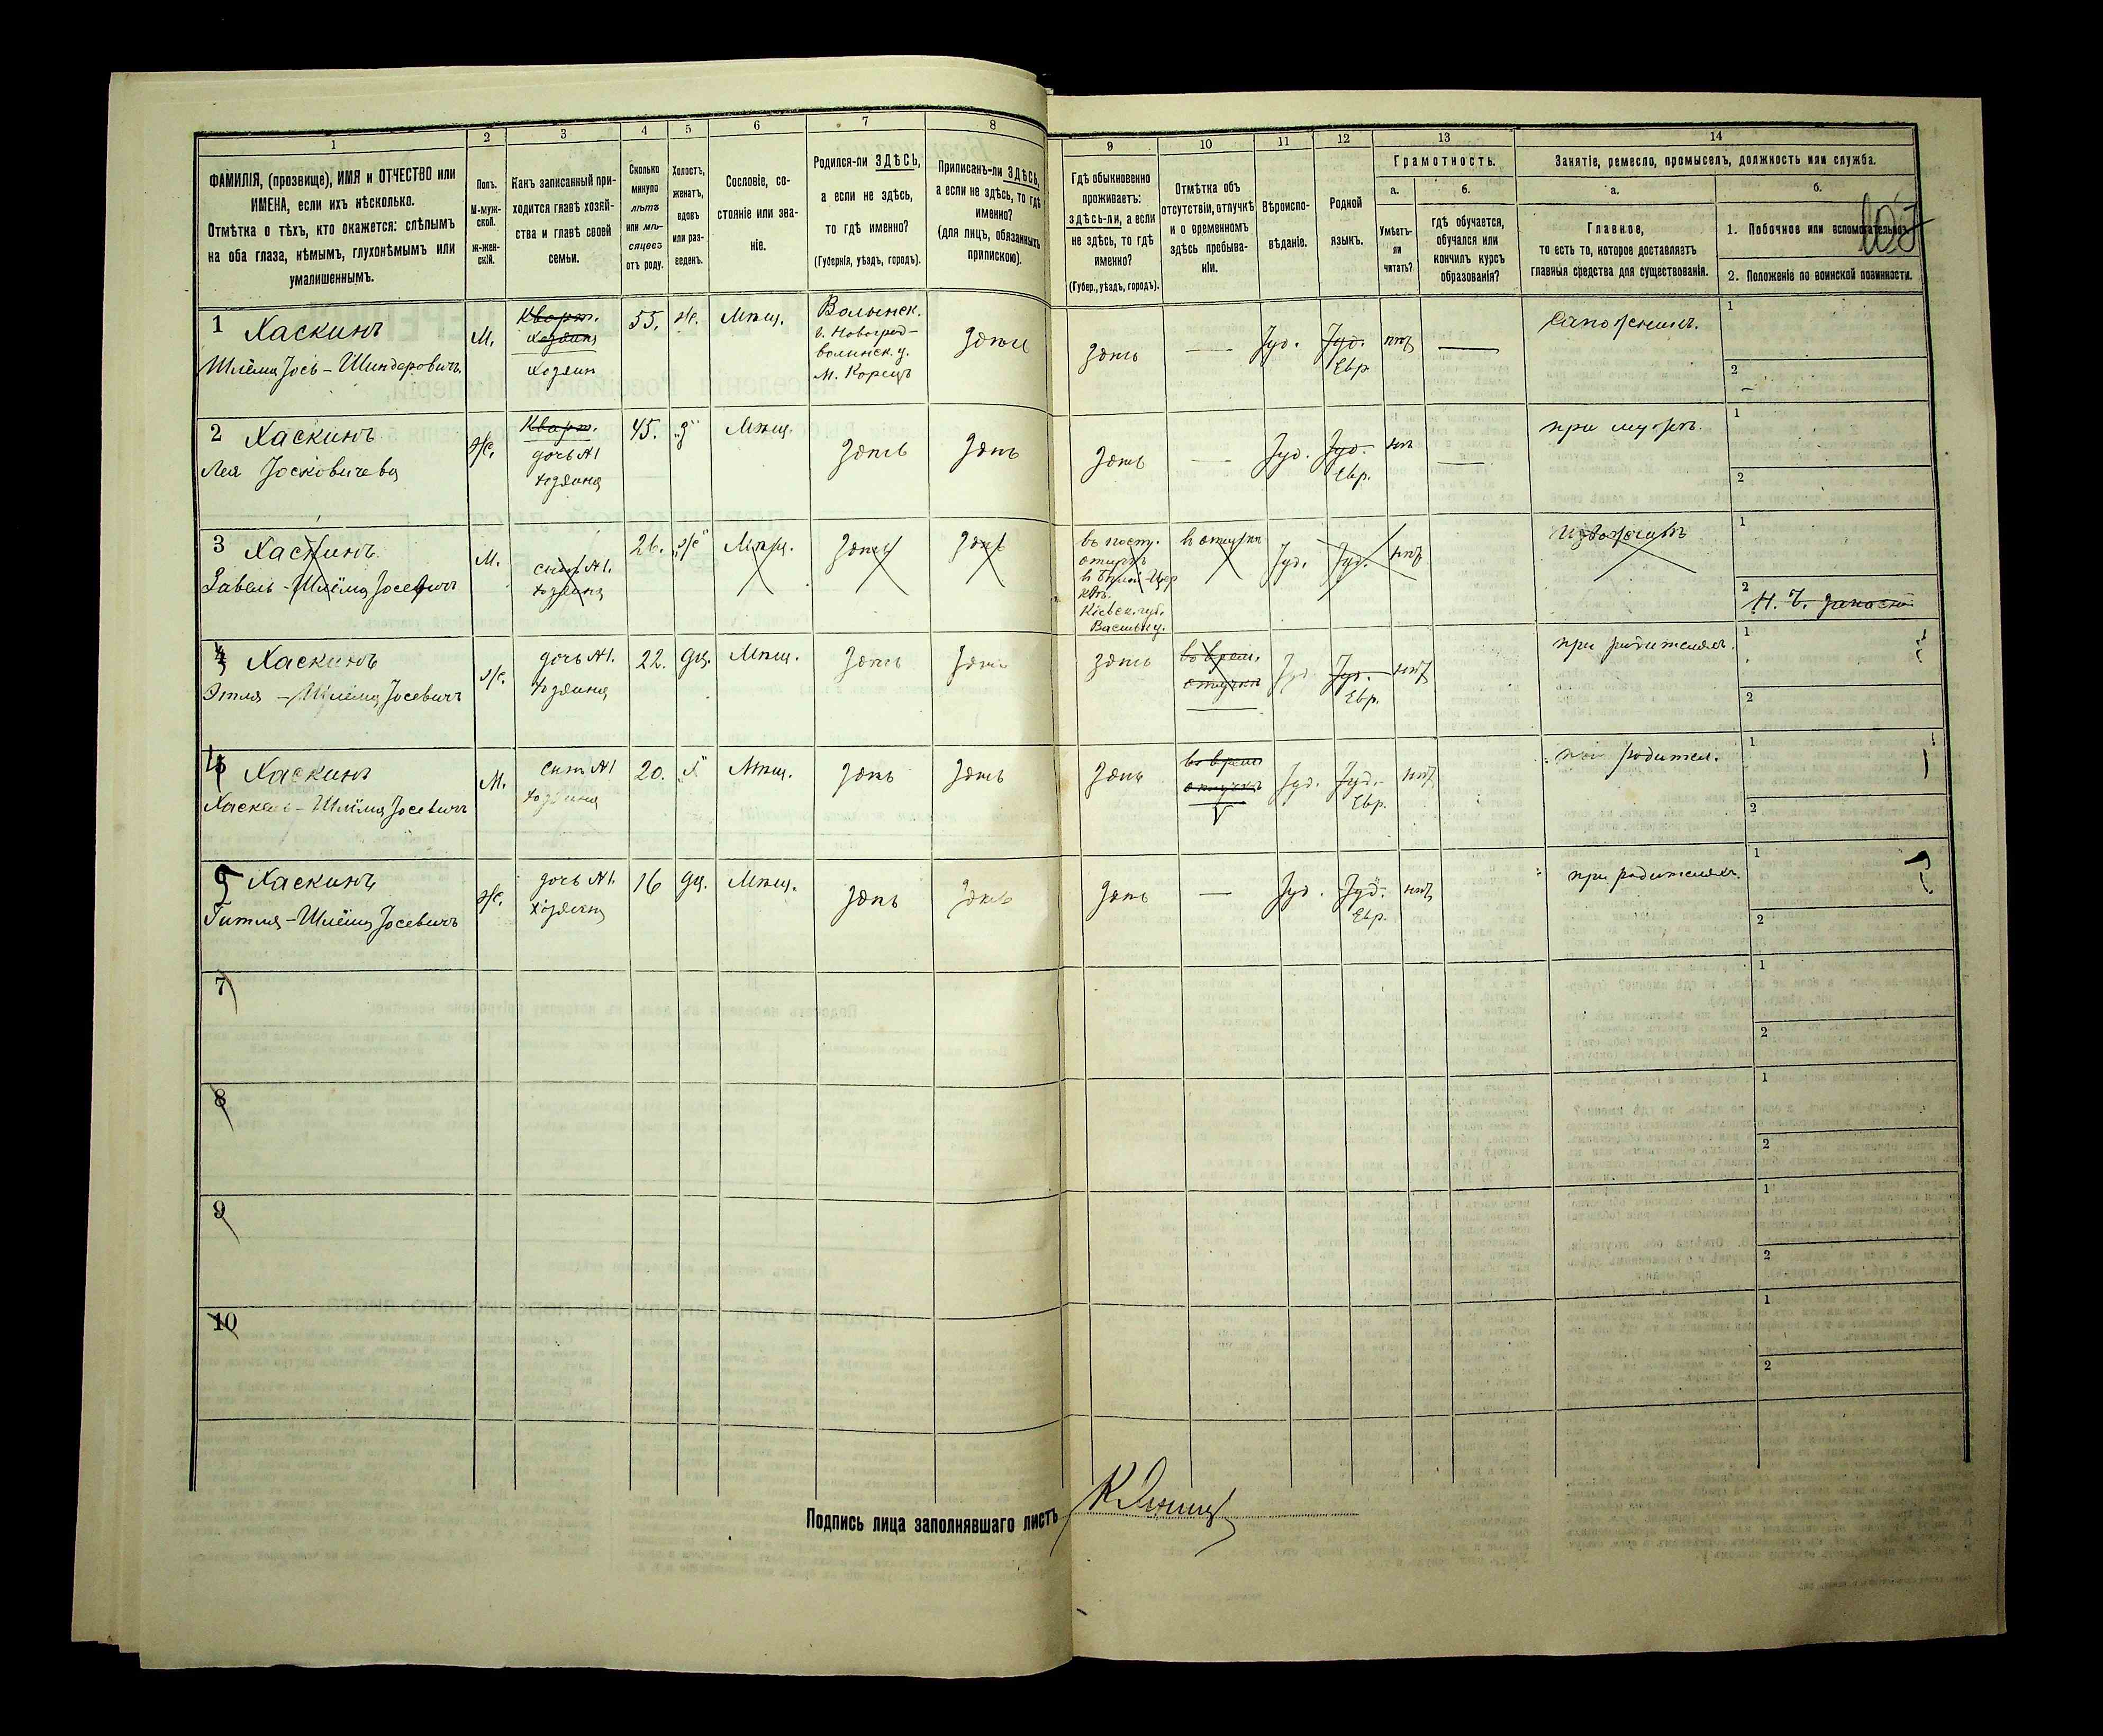 1
2
3
4
5
6
7
8
ФАМИЛІЯ, (прозвище), ИМЯ и ОТЧЕСТВО или
ИМЕНА, если ихъ нѣсколько.
Отмѣтка о тѣхъ, кто окажется: слѣпымъ
на оба глаза, нѣмымъ, глухонѣмымъ или
умалишеннымъ.
Полъ.
М-муж-
ской.
Ж-жен-
скій.
Какъ записанный при-
ходится главѣ хозяй-
ства и главѣ своей
семьи.
Сколько
минуло
лѣтъ
или мѣ-
сяцевъ
отъ роду.
Холостъ,
женатъ,
вдовъ
или раз-
веденъ.
Сословіе, со-
стояніе или зва-
ніе.
Родился-ли ЗДѢСЬ,
а если не здѣсь,
то гдѣ именно?
(Губернія, уѣздъ, городъ).
Приписанъ-ли ЗДѢСЬ,
а если не здѣсь, то гдѣ
именно?
(для лицъ, обязанныхъ
припискою).
9
10
11
12
13
14
Гдѣ обыкновенно
проживаетъ:
здѣсь-ли, а если
не здѣсь, то гдѣ
именно?
(Губер., уѣздъ, городъ).
Отмѣтка объ
отсутствіи, отлучкѣ
и о временномъ
здѣсь пребыва-
ніи.
Вѣроиспо-
вѣданіе.
Родной
языкъ.
Грамотность.
а.
Умѣетъ-
ли
читать?
б.
гдѣ обучается,
обучался или
кончилъ курсъ
образованія?
Занятіе, ремесло, промыселъ, должность или служба.
а.
Главное,
то есть то, которое доставляетъ
главныя средства для существованія.
б.
1. Побочное или вспомогательное.
2. Положеніе по воинской повинности.
1 Хаскинъ
Шлёма Іось-Шиндеровичъ
М.
Кварт.
Хозяина
Хозяин
55.
ж.
Мѣщ.
Волынск.
г. Новоград-
волинск. у.
м. Корецъ
Здѣсь
Здѣсь
—
Іуд.
Іуд.
Евр
нѣт
—
Сапожникъ.
1
2
2 Хаскинъ
Лея
ж.
Кварт.
дочь №1
хозяина
45.
"з"
Мѣщ.
Здѣсь
Здѣсь
Здѣсь
—
Іуд.
Іуд.
Евр.
нѣт
—
при мужѣ.
1
2
3 Хаскинъ
Шлёма Іосевичъ
М.
сынъ №1.
хозяина
26.
"ж"
Мѣщ.
Здѣсь
Здѣсь
Кіевск. губ.
в отлучкѣ
Іуд.
Іуд.
нѣт
Извозчикъ
1
2
4 Хаскинъ
Этля - Шлёма Іосевичъ
ж.
дочь №1.
хозяина
22.
дѣ.
Мѣщ.
Здѣсь
Здѣсь
здѣсь
во врем.
отлучкѣ
Іуд.
Іуд.
Евр.
нѣт
при родителяхъ.
1
2
5 Хаскинъ
Хаскель - Шлёма Іосевичъ
М.
сынъ №1
хозяина
20.
"х"
Мѣщ.
Здѣсь
Здѣсь
Здѣсь
во врем
отлучкѣ
Іуд.
Іуд.
Евр.
нѣт
при родител.
1
2
5 Хаскинъ
Гитля - Шлёма Іосевичъ
ж.
дочь №1.
хозяина
16
дѣ.
Мѣщ.
Здѣсь
Здѣсь
Здѣсь
—
Іуд.
Іуд.
Евр.
нѣт
при родителяхъ.
1
2
7
1
2
8
1
2
9
1
2
10
1
2
Подпись лица заполнявшаго листъ